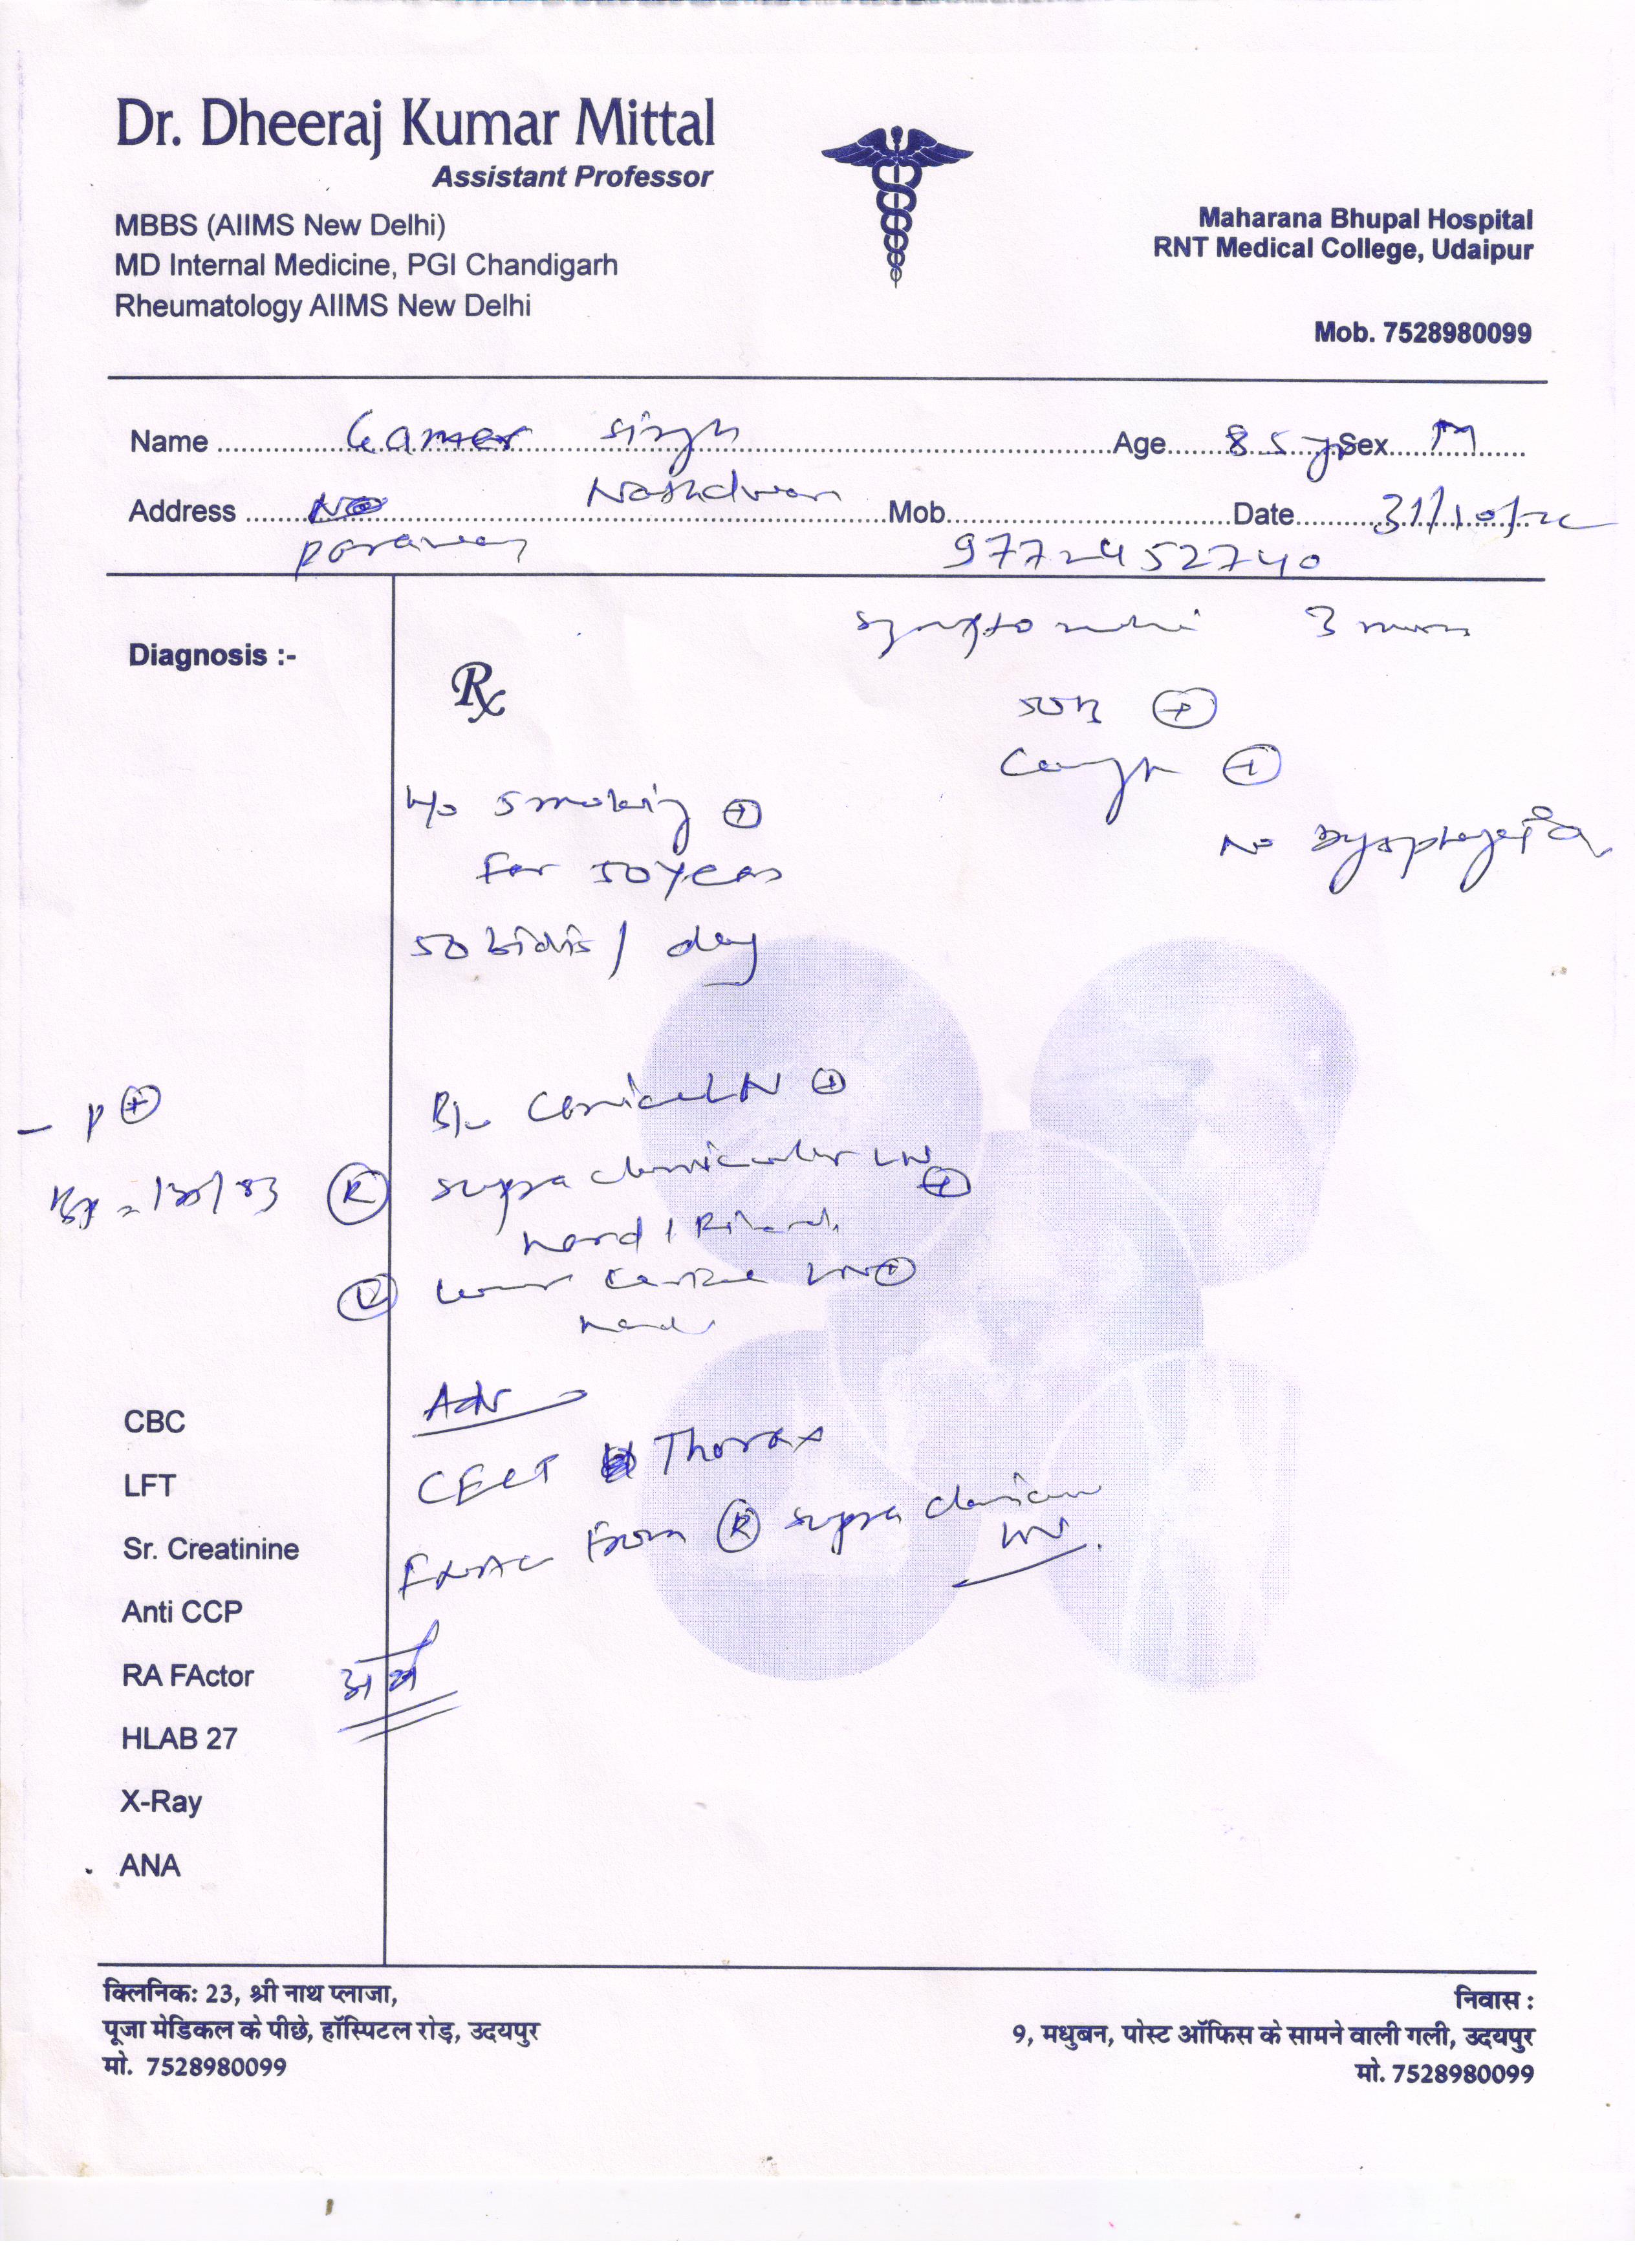 Dr. Dheeraj Kumar Mittal
Assistant Professor
MBBS (AIIMS New Delhi)
MD Internal Medicine, PGI Chandigarh
Rheumatology AIIMS New Delhi
Maharana Bhupal Hospital
RNT Medical College, Udaipur
Mob. 7528980099
Name Singh Age 85 yr Sex M
Address Mob. Date 31/10/22
9772452740
Diagnosis :-
Rx
3
SOB +
Cough +
No Dysphagia
H/o Smoking +
For 50 years
50 bidis / day
- P +
B/L Cervical LN +
BP = /83
R supraclavicular LN +
Hard /
L lower LN +
Hard
Adv
CECT Thorax
FNAC From R supraclavicular
LN
CBC
LFT
Sr. Creatinine
Anti CCP
RA FActor
HLAB 27
X-Ray
ANA
क्लिनिक: 23, श्री नाथ प्लाजा,
पूजा मेडिकल के पीछे, हॉस्पिटल रोड़, उदयपुर
मो. 7528980099
निवास :
9, मधुबन, पोस्ट ऑफिस के सामने वाली गली, उदयपुर
मो. 7528980099